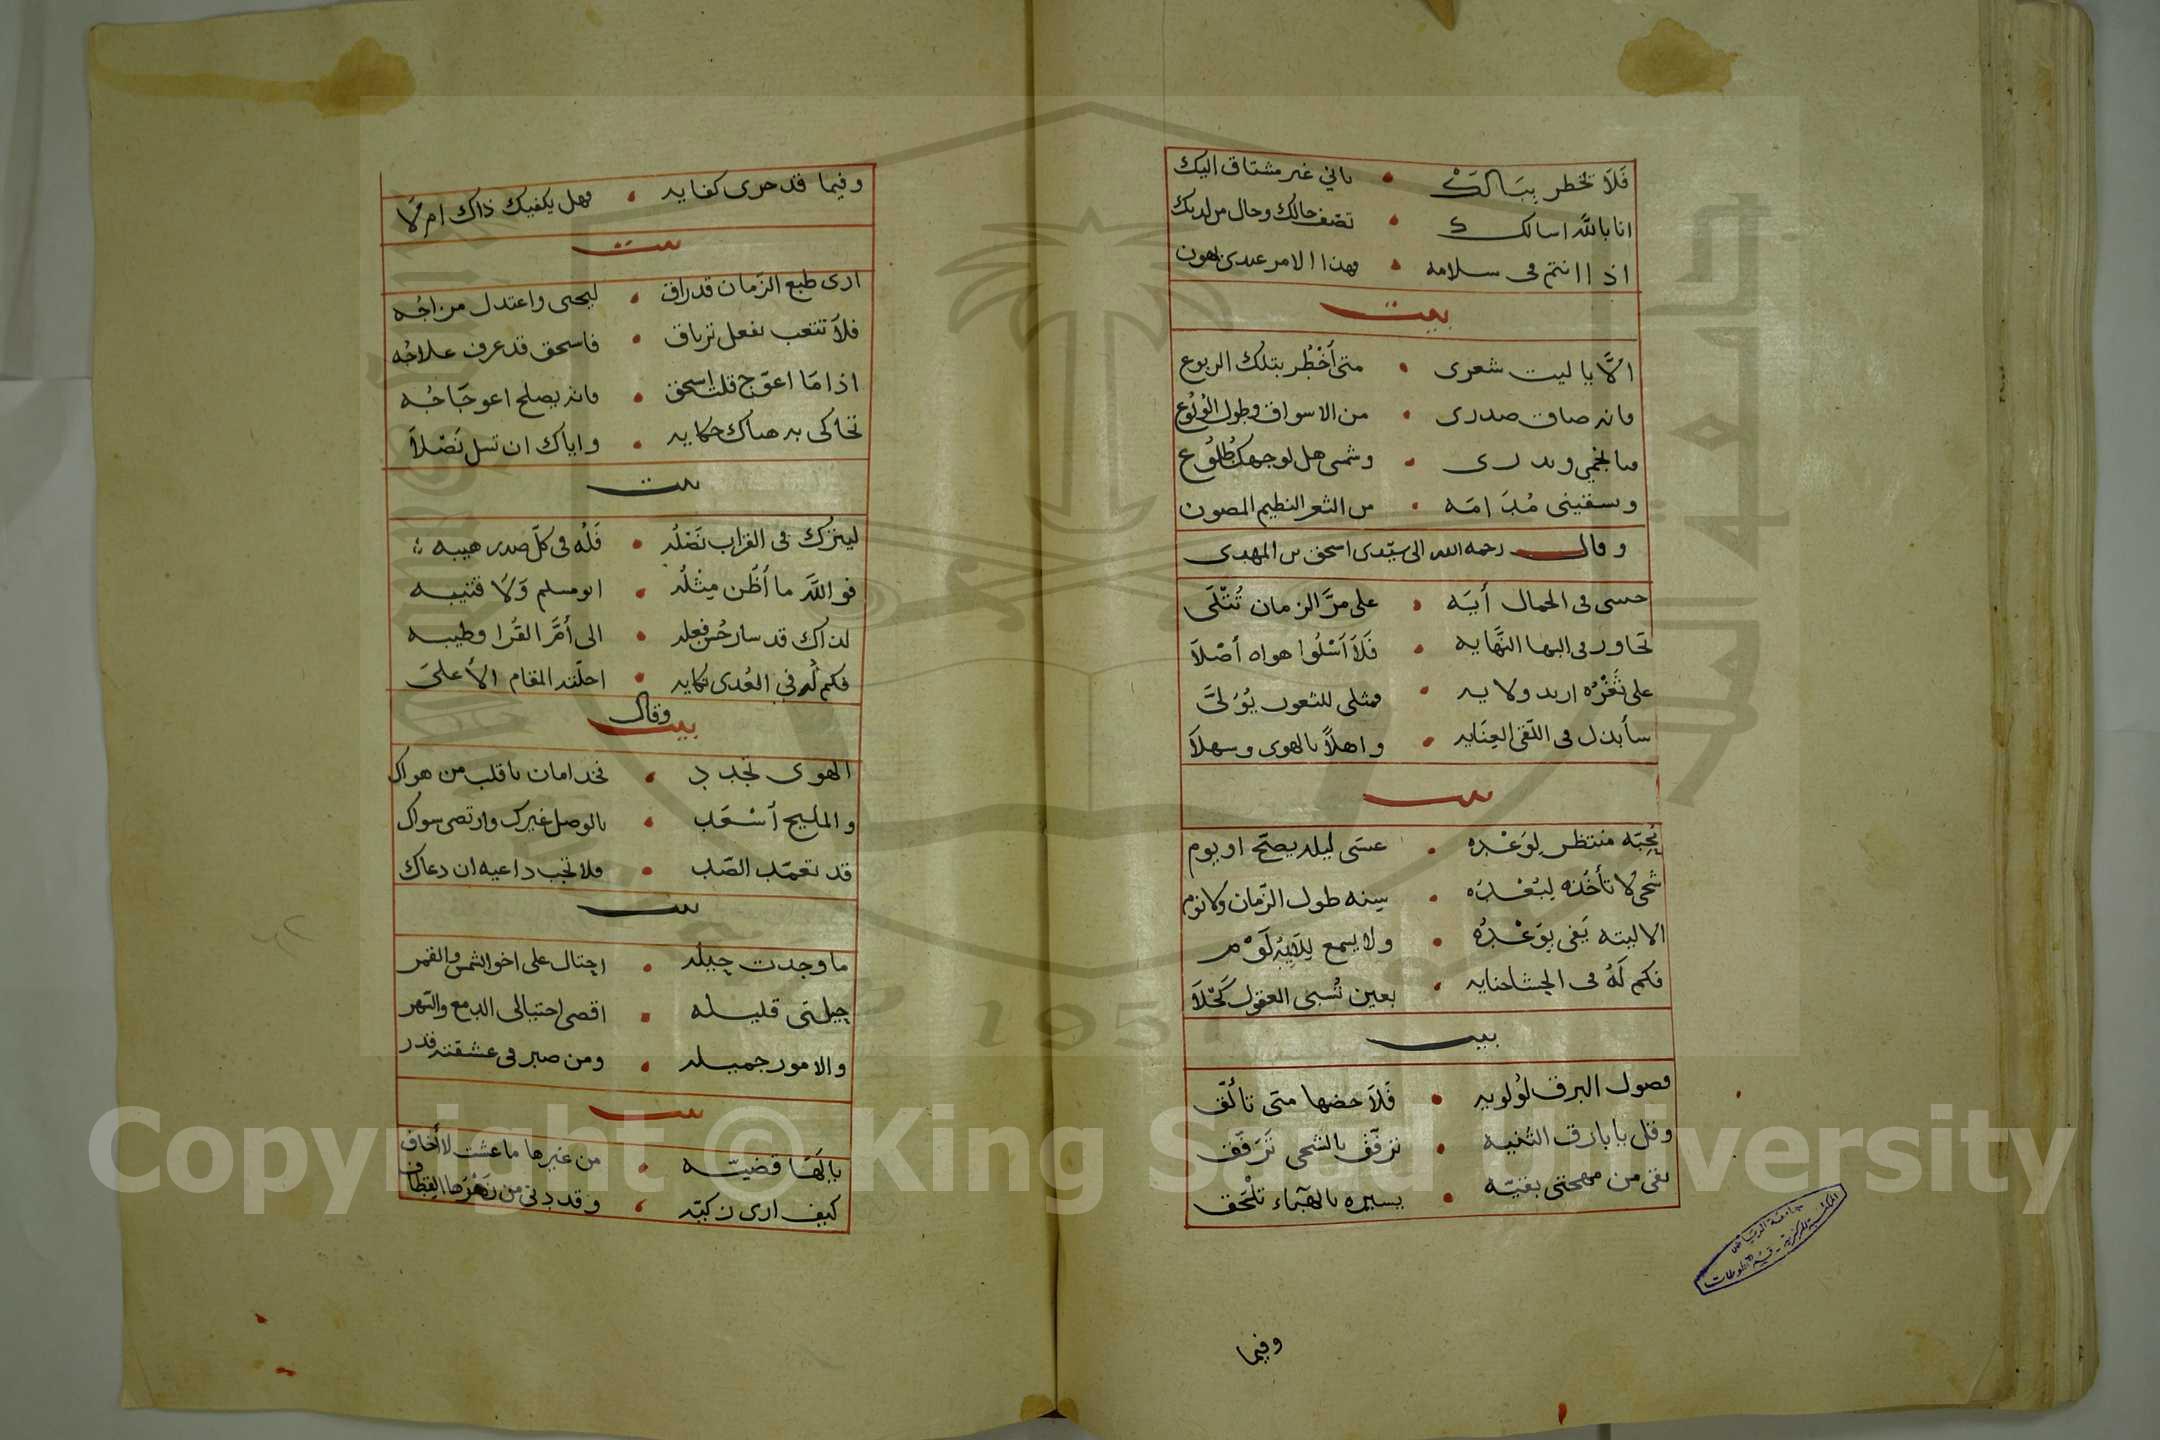 فَلَا تخطر ببَالَكْ • باني غير مشتاق اليك
انا بالله اسالك • تصف حالك وحال من لديك
اذا انتم في سلامه • فهذا الامر عندي يهون
بيت
الَّا يا ليت شعرى • متى أَخْطُر بتلك الربوع
فانه ضاق صدرى • من الاسواق وطول الولُوع
فيا نجمي وبدرى • وشمسى هل لوجهك طُلُوع
وتسقينى مُدَامَه • من الثغر النظيم المصون
وقال رحمه الله الى سيّدى اسحق بن المهدى
حبيبى فى الجمال أيَه • على مَرَّ الزمان تُتْلَى
تجاوز فى البها النّهَايه • فَلَا اَسْلُوا هواه أصْلاَ
على ثَغْرُه اريد ولايه • فمثلى للثغور يُوَلىَّ
سأبذل فى اللّقى العِنَايه • واهلاً بالهوى وسهلاَ
بيت
مُحِبّه منتظر لِوَعْدِه • عسَى ليله يصّح او يوم
شجى لا تأخذه لبُعْدُه • سِنه طول الزّمان ولا نوم
الا ليته يَفى بوَعْدُه • ولا يسمع لِلَايِمْ لَوْم
فكم لَهُ فى الحشا جنايه • بعين تُسبى العقول كَحْلاَ
بيت
فصول البرق لُولُويه • فَلاَحضها متى تألَّق
وقل يا بارق الثنيه • ترفّق بالشجى تَرَفّق
بقى من مهجتى بقيّه • يسيره بالهَباء تلْحَق
وفيما
وفيما قد جرى كفايه • فهل يكفيك ذاك ام لَا
بيت
ارى طبع الزّمان قد راق • ليحيى واعتدل مزاجُه
فلا تتعب بفعل ترياق • فاسحق قد عرف علاجُه
اذا مَا اعوّج قلت اسحق • فانه يصلح اعوجَاجُه
تحاكى به هناك حكايه • واياك ان تسل نَصْلاَ
بيت
ليتركْ فى القراب نَصْلُه • فَلُه فى كلّ صدر هيبه
فو اللَّه ما أَظُن مِثْلُه • ابو مسلم وَلَا قتيبه
لذاك قد سار حُسن فِعله • الى أمّ القُرا وطيبه
فكم لُه في العُدى نكايه • احلّته المقام الأعلىَ
وقال
بيت
الهوى تجدد • فخد امان يا قلب من هواك
والمليح اَسْعَد • بالوصل غيرك وارتضى سواك
قد تعمّد الصّد • فلا تجب داعيه ان دعاك
بيت
ما وجدت حِيله • احتال على اخو الشمس والقمر
حِيلتى قليله • اقصى احتيالى الدمع والسّهر
والامور جميله • ومن صبر فى عشقته قدر
بيت
يا لَهَا قضيّه • من غيرها ما عشت لا أخاف
كيف ارى زكيّه • وقد دنى من زَهْرَها القِطاف